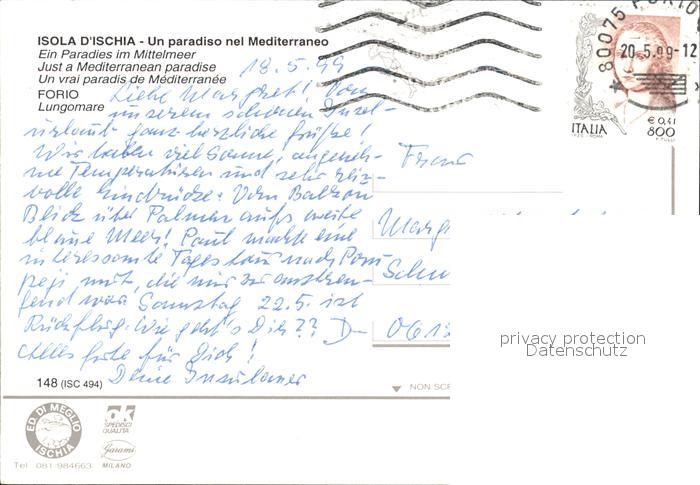 ISOLA D'ISCHIA - Un paradiso nel Mediterraneo
Ein Paradies im Mittelmeer
Just a Mediterranean paradise
Un vrai paradis de Méditerranée
FORIO
Lungomare
18.5.99
Liebe Margret! Von
unserem schönen Insel-
urlaub ganz herzliche Grüße!
Wir haben viel Sonne, angeneh-
me Temperaturen und sehr reiz-
volle Eindrücke. Vom Balkon
Blick über Palmen aufs weite
blaue Meer! Paul machte eine
interessante Tagestour nach Pom
peji mit, die mir zu anstren-
gend war. Samstag 22.5. ist
Rückflug. Wie geht's Dir??
Alles Gute für Dich!
Deine Insulaner
Frau
Marg
Schu
D- 061
80075 FORIO
20.5.99-12
ITALIA
€ 0,41
800
148 (ISC 494)
NON SC
privacy protection
Datenschutz
ED. DI MEGLIO
ISCHIA
Tel. 081 984663
ok
SPEDISCI
QUALITÀ
Garami
MILANO